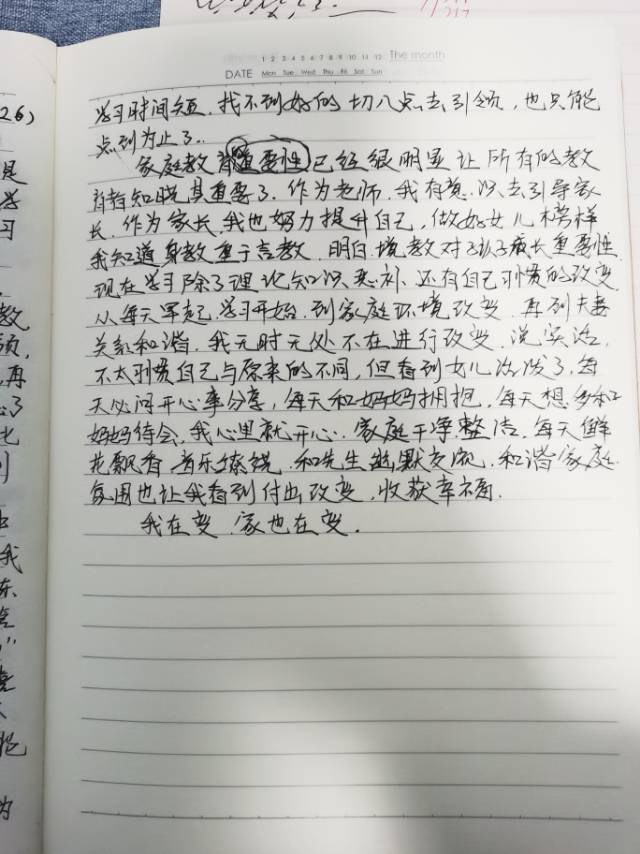 1 2 3 4 5 6 7 8 9 10 11 12 The month
DATE Mon Tue Wed Thu Fri Sat Sun
学习时间短，找不到好的切入点去引领，也只能
点到为止了。
家庭教育重要性已经很明显让所有的教
育者知晓其重要了。作为老师，我有意识去引导家
长，作为家长，我也努力提升自己，做好女儿榜样
我知道身教重于言教，明白境教对于孩子成长重要性
现在学习除了理论知识恶补，还有自己习惯的改变
从每天早起学习开始，到家庭环境改变，再到夫妻
关系和谐，我无时无处不在进行改变，说实话，
不太习惯自己与原来的不同，但看到女儿活泼了，每
天必问开心事分享，每天和妈妈拥抱，每天想多和
妈妈待会，我心里就开心，家庭干净整洁，每天鲜
花飘香，音乐缭绕，和先生幽默交流，和谐家庭
氛围也让我看到付出改变，收获幸福。
我在变，家也在变。
26）
是
习
教
领，
再
了
我
东
能
为